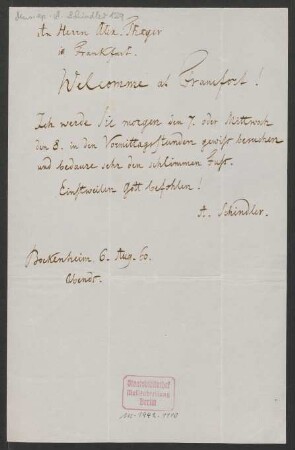 An Herrn Alex. Thayer
in Frankfurt.
Welcomme at Francfort!
Ich werde Sie morgen den 7. oder Mittwoch
den 8. in den Vormittagsstunden gewiß besuchen
und bedaure sehr den schlimmen Fuß.
Einstweilen Gott befohlen!
A. Schindler.
Bockenheim, 6. Aug. 60.
Abends.
Staatsbibliothek
Musikabteilung
Berlin